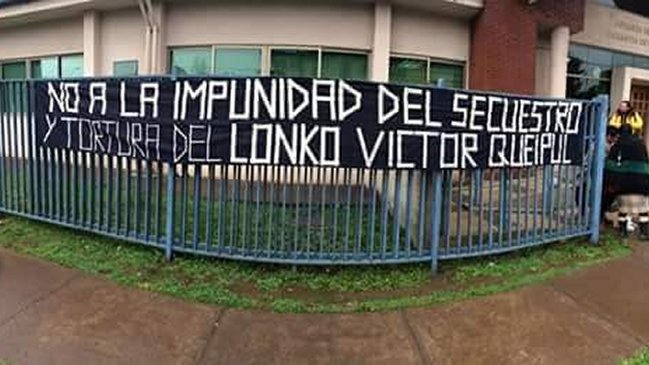 NO A LA IMPUNIDAD DEL SECUESTRO
Y TORTURA DEL LONKO VICTOR QUEIPUL